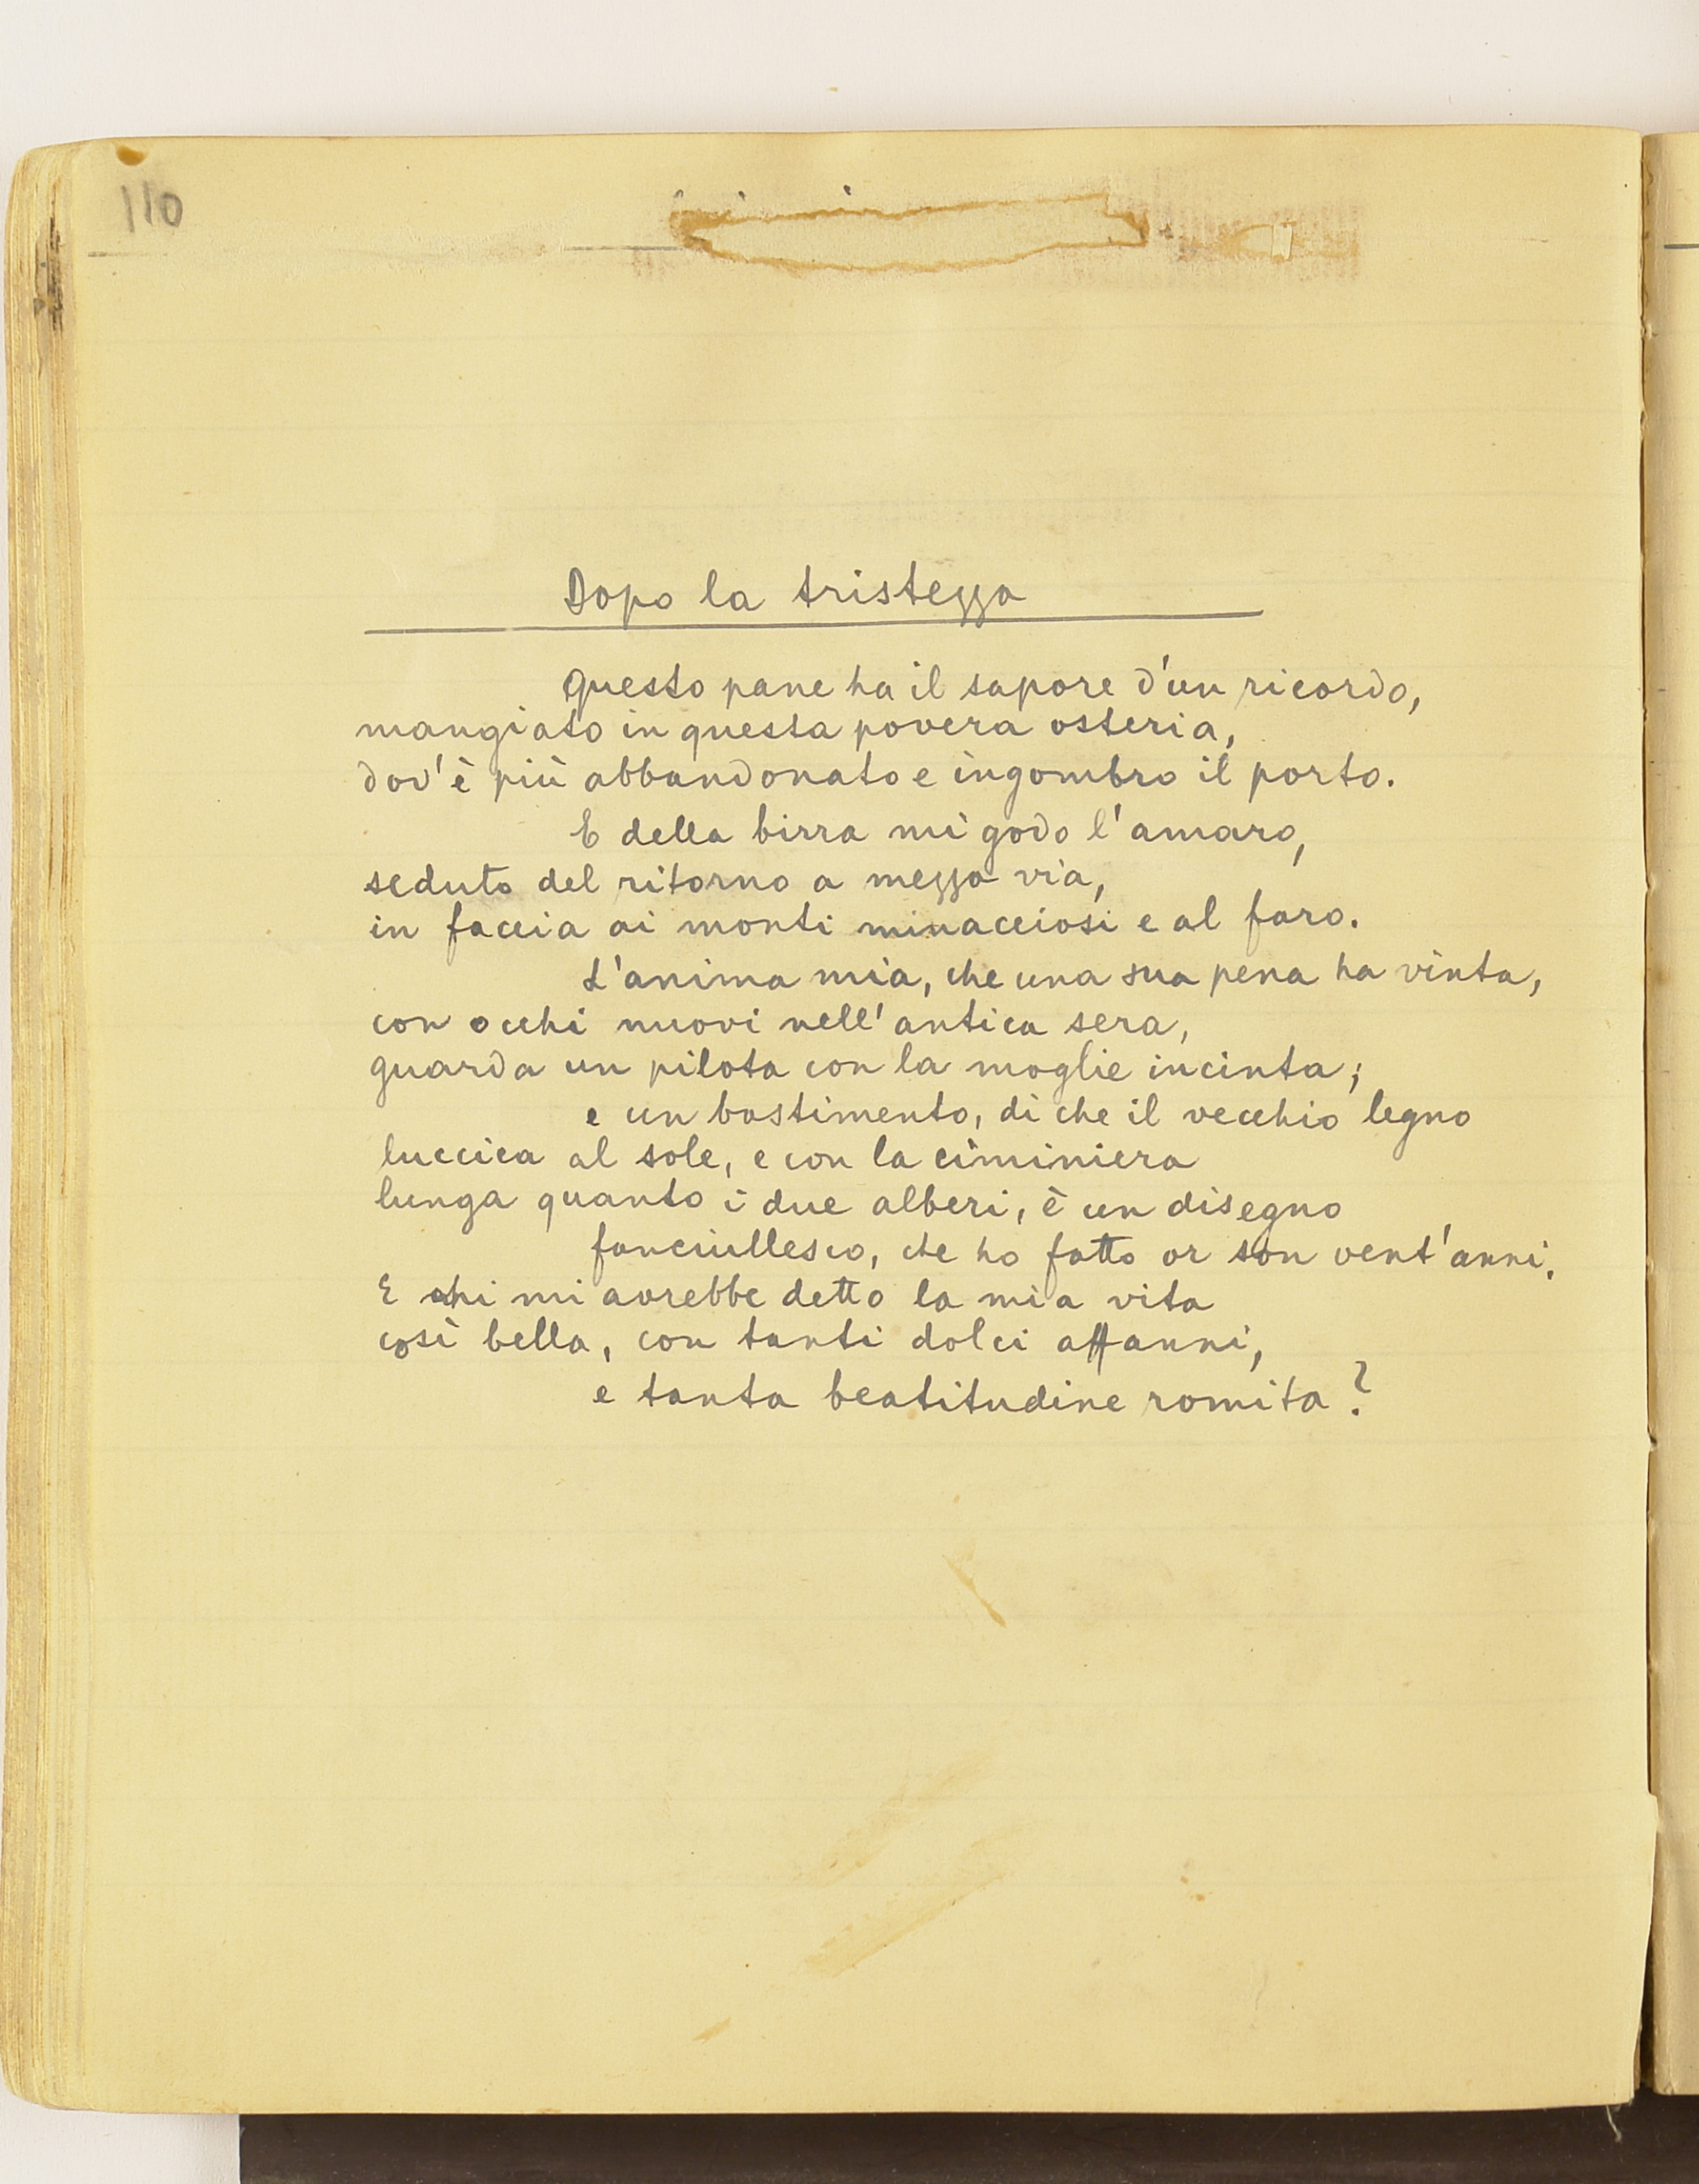 110
Dopo la tristezza
Questo pane ha il sapore d'un ricordo,
mangiato in questa povera osteria,
dov'è più abbandonato e ingombro il porto.
E della birra mi godo l'amaro,
seduto del ritorno a mezza via,
in faccia ai monti minacciosi e al faro.
L'anima mia, che una sua pena ha vinta,
con occhi nuovi nell'antica sera,
guarda un pilota con la moglie incinta;
e un bastimento, di che il vecchio legno
luccica al sole, e con la ciminiera
lunga quanto i due alberi, è un disegno
fanciullesco, che ho fatto or son vent'anni.
E chi mi avrebbe detto la mia vita
così bella, con tanti dolci affanni,
e tanta beatitudine romita?